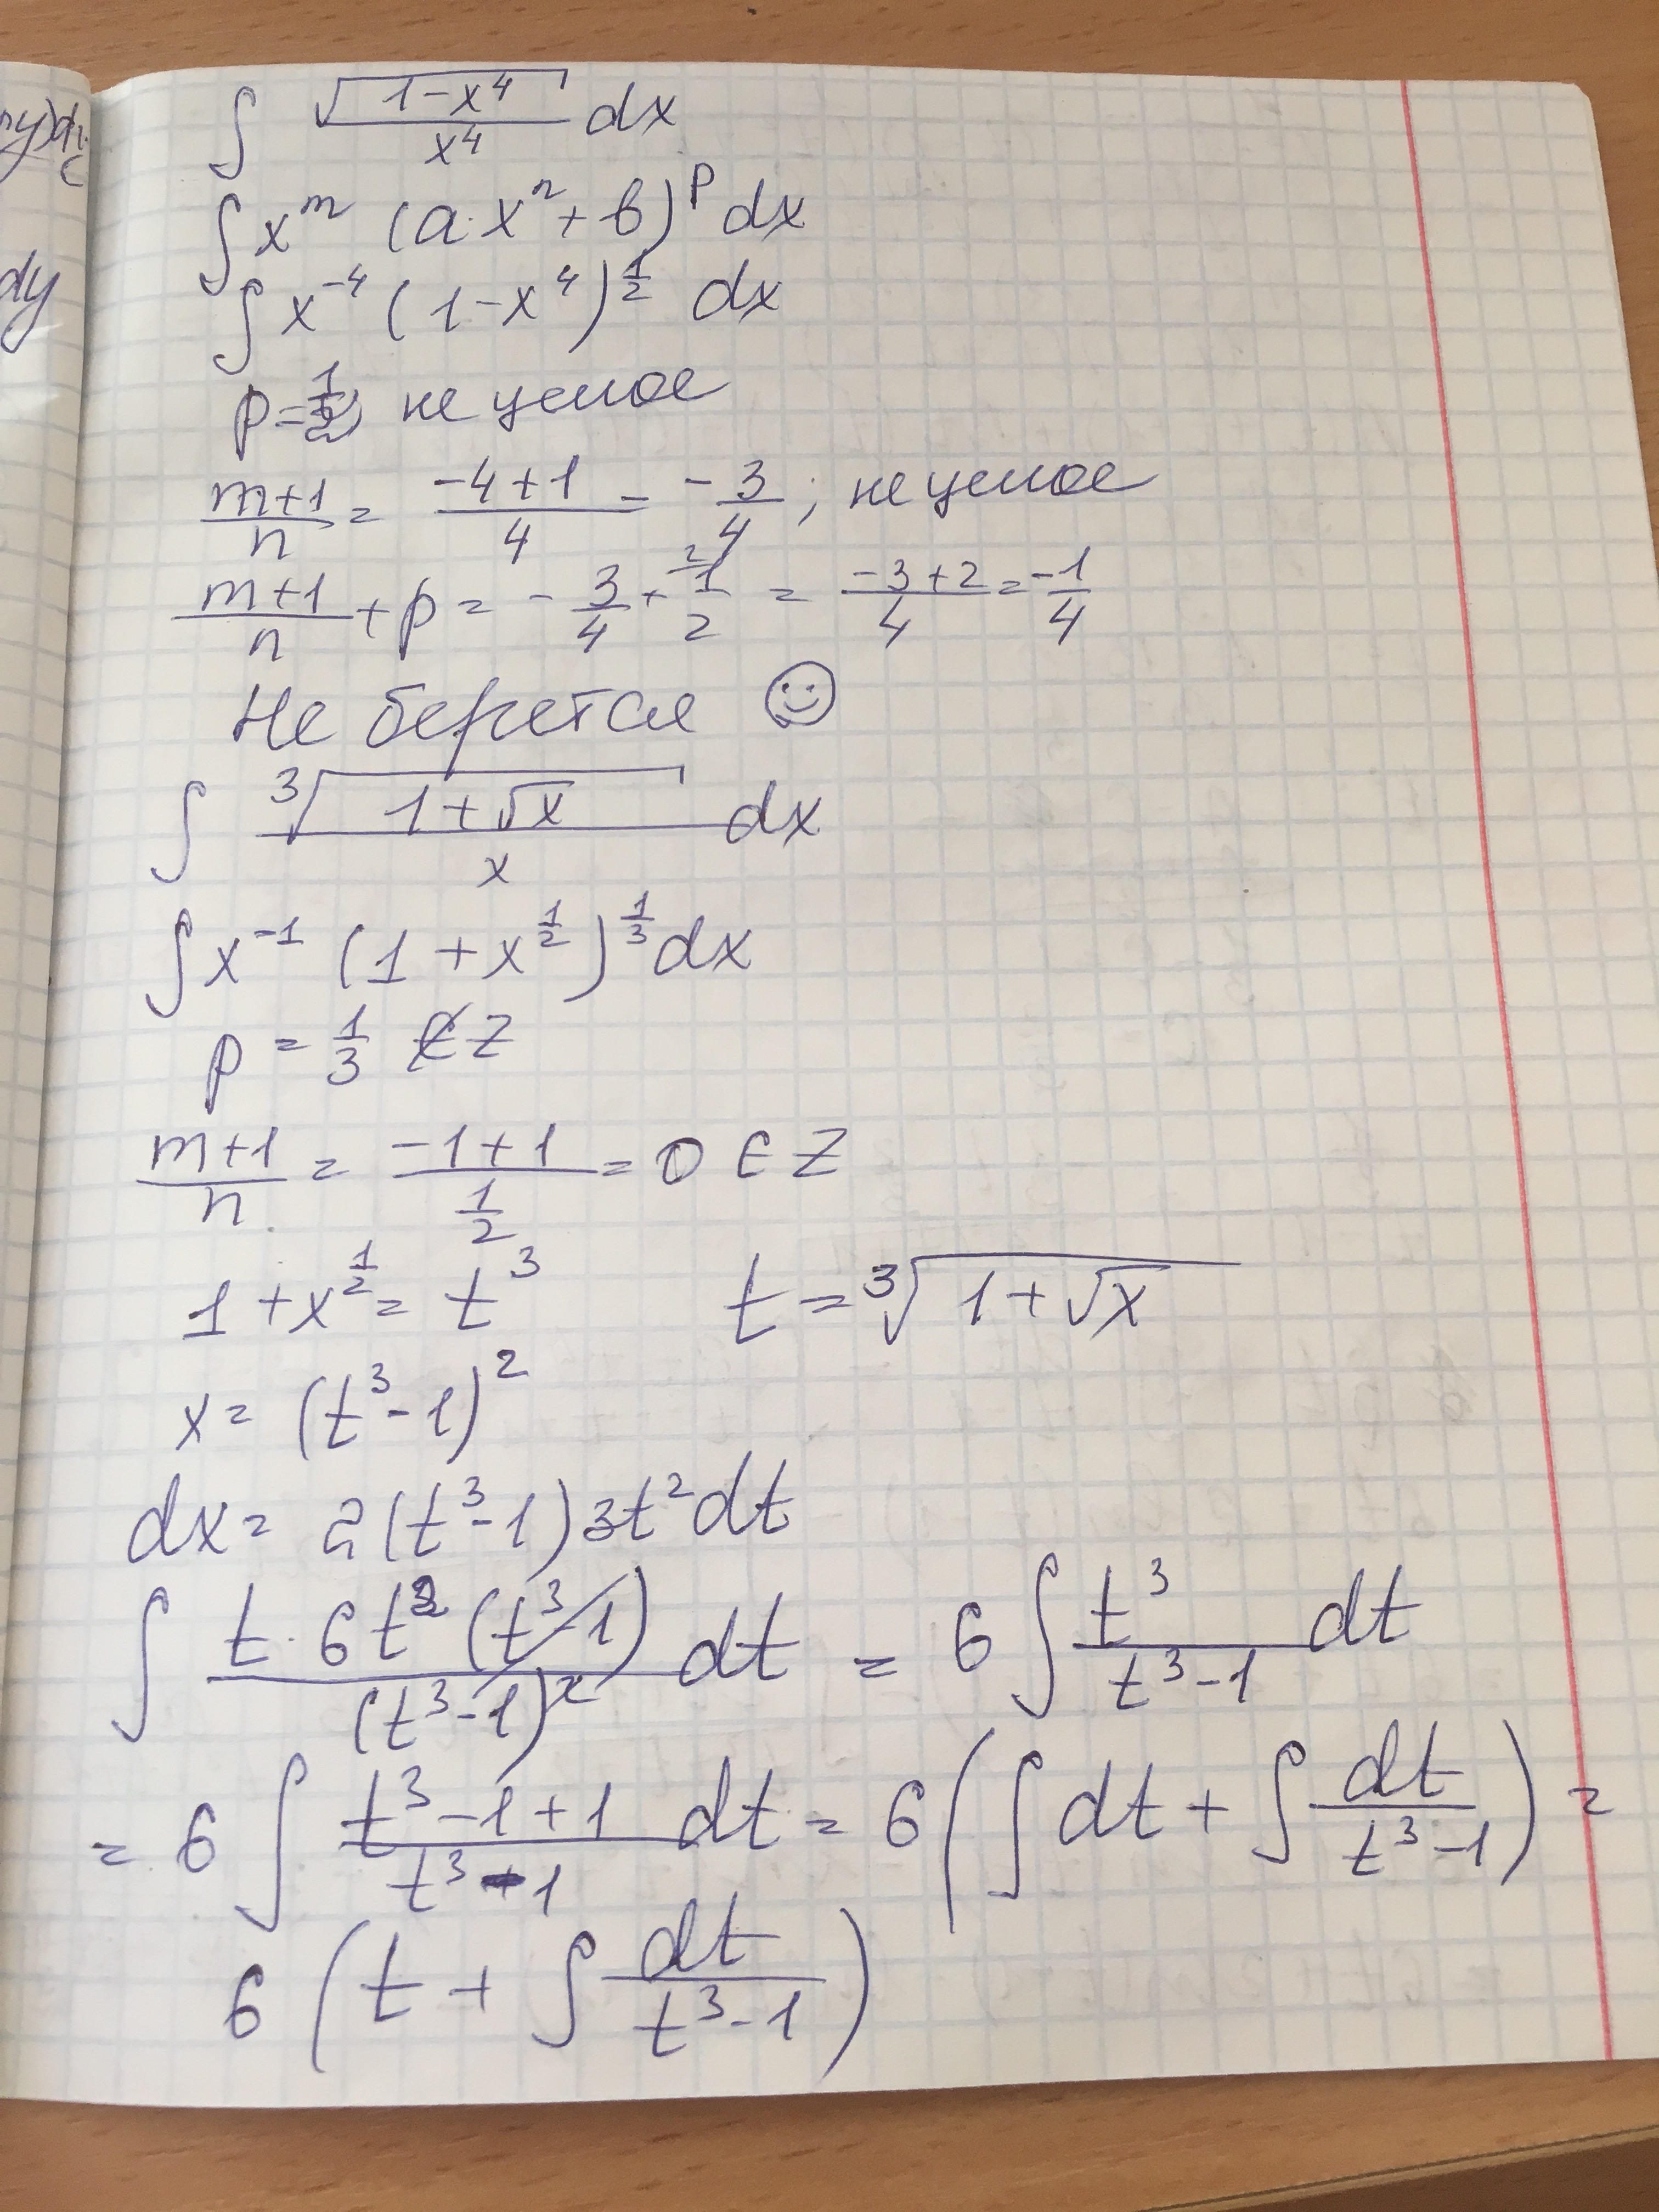 ∫ √(1-x⁴)/x⁴ dx
∫ xᵐ (a·xⁿ+b)ᵖ dx
∫ x⁻⁴ (1-x⁴)^(1/2) dx
p = 1/2; не целое
(m+1)/n = (-4+1)/4 = -3/4; не целое
(m+1)/n + p = -3/4 + 1/2 = (-3+2)/4 = -1/4
Не берется ☺
∫ ³√(1+√x)/x dx
∫ x⁻¹ (1+x^(1/2))^(1/3) dx
p = 1/3 ∉ Z
(m+1)/n = (-1+1)/(1/2) = 0 ∈ Z
1+x^(1/2) = t³ t = ³√(1+√x)
x = (t³-1)²
dx = 2(t³-1)3t²dt
∫ t·6t²(t³-1)/(t³-1)² dt = 6 ∫ t³/(t³-1) dt
= 6 ∫ (t³-1+1)/(t³-1) dt = 6(∫ dt + ∫ dt/(t³-1)) =
6(t + ∫ dt/(t³-1))
dy